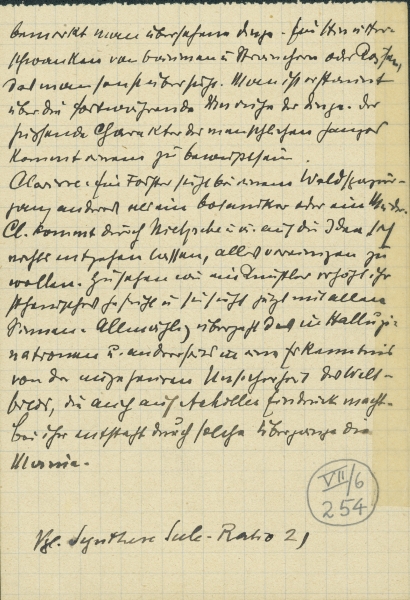 bemerkt man übersehene Dinge. Ein Hin u Her-
schwanken von Bäumen u Sträuchern oder Gräsern,
das man sonst übersieht. Man ist erstaunt
über die fortwährende Unruhe der Dinge. Der
fliessende Charakter der menschlichen
kommt einem zu bewusstsein.
Clarisse: Ein Förster sieht bei einem Waldspazier-
gang anderes als ein Botaniker oder ein Mörder.
Cl. kommt durch Nietzsche u.ä. auf die Idee sich
nichts entgehen lassen, alles vereinigen zu
wollen. Zu sehen wie ein Künstler erhöht ihr
Gesicht u sie sieht jetzt mit allen
Sinnen. Allmählich übergeht das in Halluzi-
nationen u. anderseits in eine Erkenntnis
von der ungeheuren Unsicherheit des Welt-
bilds, die auch auf Achilles Eindruck macht.
Bei ihr entsteht durch solche Übergänge die
Manie.
VII/6
254
Vgl. Synthese Seele-Ratio 2,